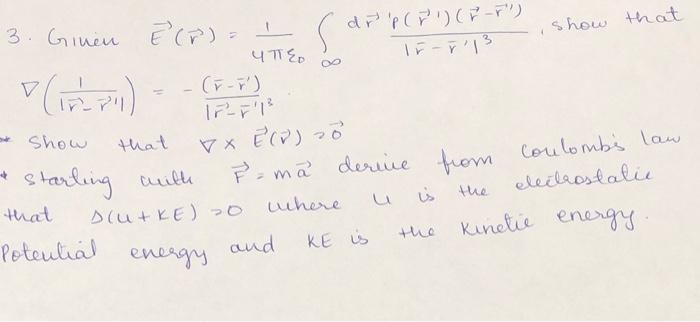 3. Given E⃗(r⃗) = 1/4πε₀ ∫∞ dr⃗'ρ(r⃗')(r⃗-r⃗')/|r̄-r̄'|³, show that
∇(1/|r⃗-r⃗'|) = -(r̄-r̄')/|r⃗-r̄'|³
* Show that ∇× E⃗(r⃗) = 0⃗
* starting with F⃗ = ma⃗ derive from Coulomb's law
that Δ(U+KE) = 0 where U is the electrostatic
Potential energy and KE is the kinetic energy.